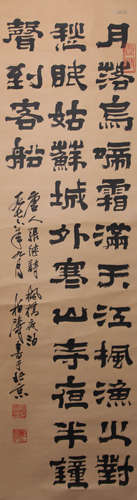 月落烏嗁霜滿天江楓漁火對
愁眠姑蘇城外寒山寺夜半鐘
聲到客船
唐人張继詩楓橋夜泊
年九月 書于北京